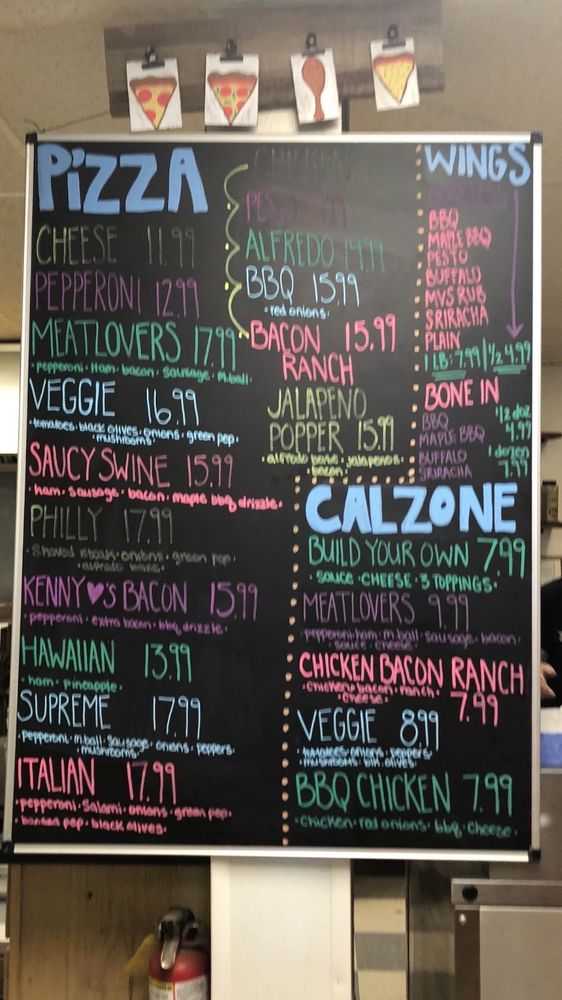 PiZZA
CHEESE 11.99
PEPPERONI 12.99
MEATLOVERS 17.99
• pepperoni • Ham • bacon • sausage • m.ball •
VEGGIE 16.99
• tomatoes • black olives • onions • green pep •
mushrooms •
SAUCY SWINE 15.99
• ham • sausage • bacon • maple bbq drizzle •
PHILLY 17.99
• Shaved steak • onions • green pep •
alfredo base •
KENNY ♥'S BACON 15.99
• pepperoni • extra bacon • bbq drizzle •
HAWAIIAN 13.99
• ham • pineapple •
SUPREME 17.99
• pepperoni • m.ball • sausage • onions • peppers •
mushrooms •
ITALIAN 17.99
• pepperoni • Salami • onions • green pep •
banana pep • black olives •
CHICKEN
PESTO
ALFREDO 14.99
BBQ 15.99
• red onions •
BACON 15.99
RANCH
JALAPENO
POPPER 15.99
• alfredo base • jalapenos •
bacon •
WINGS
BBQ
MAPLE BBQ
PESTO
BUFFALO
MVS RUB
SRIRACHA
PLAIN
1 LB: 7.99 | 1/2 4.99
BONE IN
BBQ
MAPLE BBQ
BUFFALO
SRIRACHA
1/2 doz
4.99
1 dozen
7.99
CALZONE
BUILD YOUR OWN 7.99
• SAUCE • CHEESE • 3 TOPPINGS •
MEATLOVERS 9.99
• pepperoni • ham • m.ball • sausage • bacon •
sauce • cheese •
CHICKEN BACON RANCH
• chicken • bacon • ranch •
• cheese • 7.99
VEGGIE 8.99
• tomatoes • onions • peppers •
• mushrooms • blk olives •
BBQ CHICKEN 7.99
• chicken • red onions • bbq • cheese •